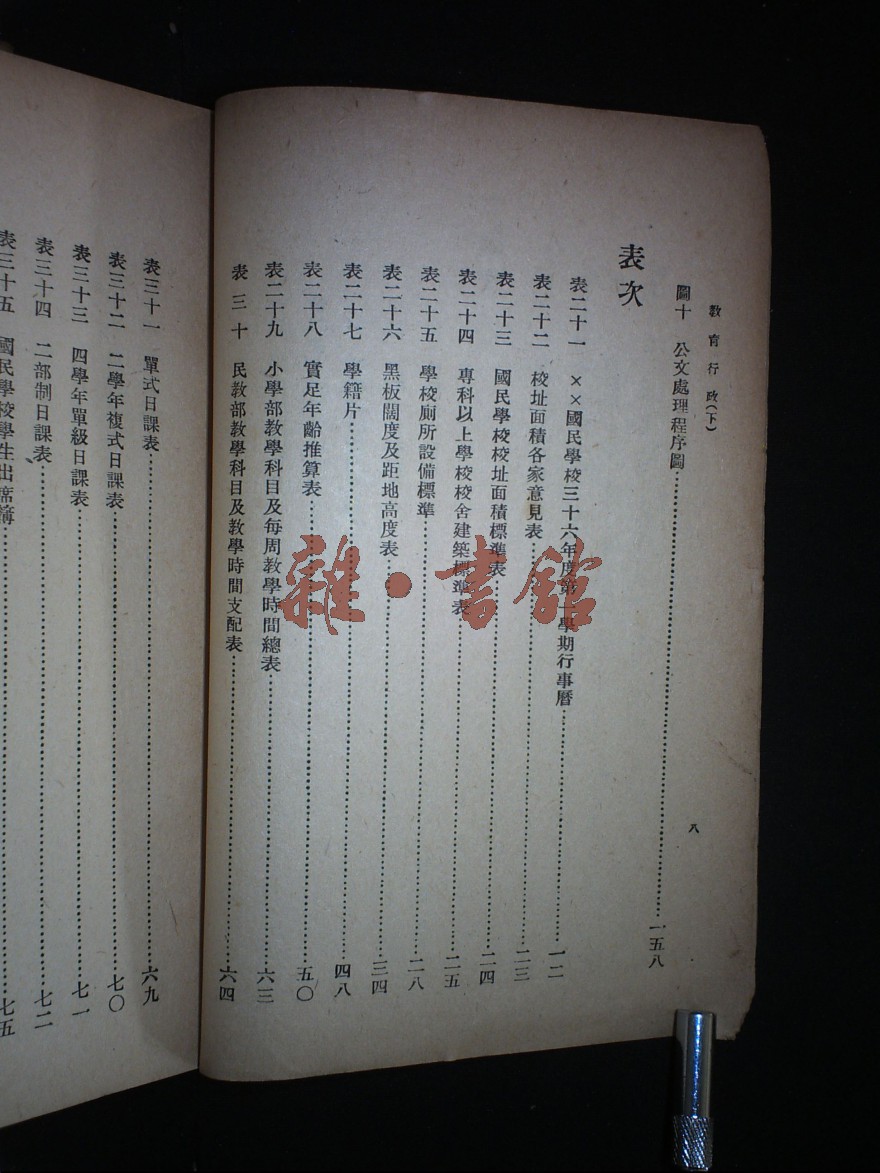 教育行政(下)
八
圖十 公文處理程序圖……一五八
表次
表二十一 ××國民學校三十六年度第一學期行事曆……一二
表二十二 校址面積各家意見表……二三
表二十三 國民學校校址面積標準表……二四
表二十四 專科以上學校校舍建築標準表……二五
表二十五 學校廁所設備標準……二八
表二十六 黑板闊度及距地高度表……三四
表二十七 學籍片……四八
表二十八 實足年齡推算表……五〇
表二十九 小學部教學科目及每周教學時間總表……六三
表三十 民教部教學科目及教學時間支配表……六四
表三十一 單式日課表……六九
表三十二 二學年複式日課表……七〇
表三十三 四學年單級日課表……七一
表三十四 二部制日課表……七二
表三十五 國民學校學生出席簿……七五
雜·書館